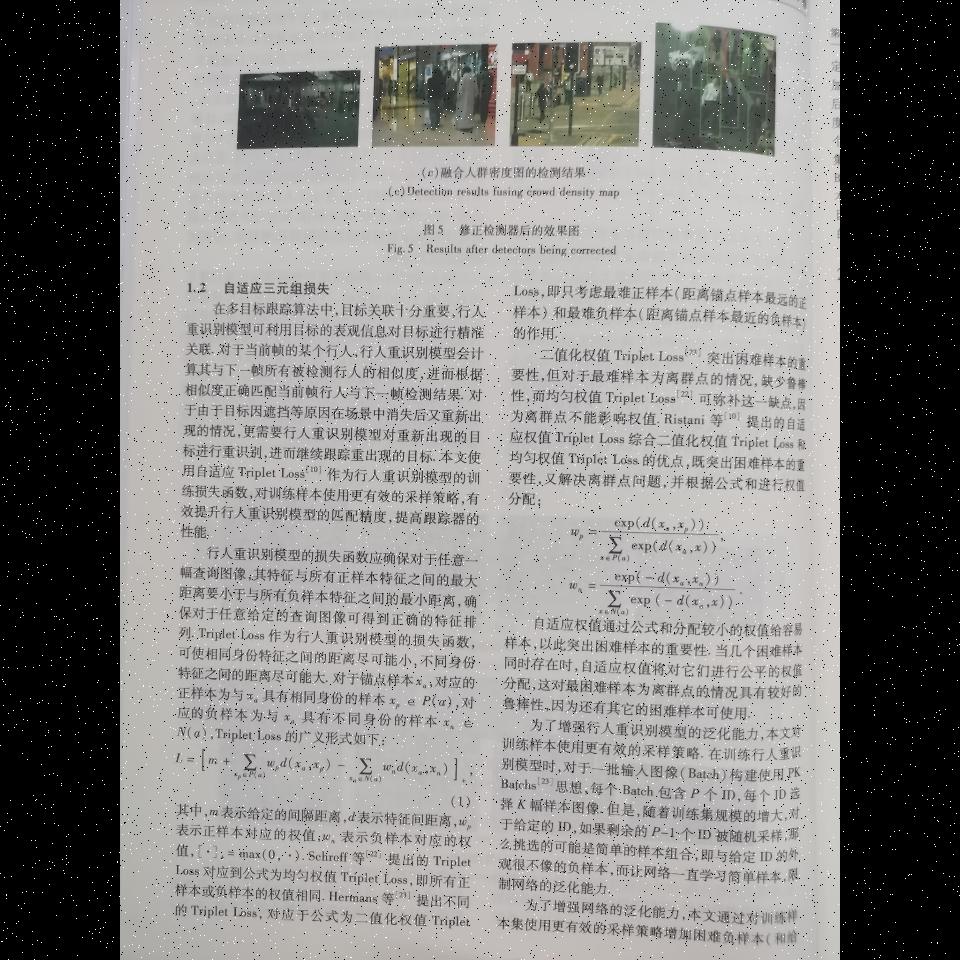 (c)融合人群密度图的检测结果
(c)Detection results fusing crowd density map
图5 修正检测器后的效果图
Fig.5 Results after detectors being corrected
1.2 自适应三元组损失
在多目标跟踪算法中,目标关联十分重要,行人
重识别模型可利用目标的表观信息对目标进行精准
关联.对于当前帧的某个行人,行人重识别模型会计
算其与下一帧所有被检测行人的相似度,进而根据
相似度正确匹配当前帧行人与下一帧检测结果.对
于由于目标因遮挡等原因在场景中消失后又重新出
现的情况,更需要行人重识别模型对重新出现的目
标进行重识别,进而继续跟踪重出现的目标.本文使
用自适应 Triplet Loss[10] 作为行人重识别模型的训
练损失函数,对训练样本使用更有效的采样策略,有
效提升行人重识别模型的匹配精度,提高跟踪器的
性能.
行人重识别模型的损失函数应确保对于任意一
幅查询图像,其特征与所有正样本特征之间的最大
距离要小于与所有负样本特征之间的最小距离,确
保对于任意给定的查询图像可得到正确的特征排
列. Triplet Loss 作为行人重识别模型的损失函数,
可使相同身份特征之间的距离尽可能小,不同身份
特征之间的距离尽可能大.对于锚点样本 x_a,对应的
正样本为与 x_a 具有相同身份的样本 x_p ∈ P(a),对
应的负样本为与 x_a 具有不同身份的样本 x_n ∈
N(a), Triplet Loss 的广义形式如下:
L = [m + ∑_{x_p∈P(a)} w_p d(x_a,x_p) − ∑_{x_n∈N(a)} w_n d(x_a,x_n)]_+,
(1)
其中,m表示给定的间隔距离,d表示特征间距离,w_p
表示正样本对应的权值,w_n 表示负样本对应的权
值,[·]_+ = max(0,·). Schroff 等[22] 提出的 Triplet
Loss 对应到公式为均匀权值 Triplet Loss,即所有正
样本或负样本的权值相同. Hermans 等[23] 提出不同
的 Triplet Loss,对应于公式为二值化权值 Triplet
Loss,即只考虑最难正样本(距离锚点样本最远的正
样本)和最难负样本(距离锚点样本最近的负样本)
的作用.
二值化权值 Triplet Loss[23] 突出困难样本的重
要性,但对于最难样本为离群点的情况,缺少鲁棒
性,而均匀权值 Triplet Loss[22] 可弥补这一缺点,因
为离群点不能影响权值. Ristani 等[10] 提出的自适
应权值 Triplet Loss 综合二值化权值 Triplet Loss 和
均匀权值 Triplet Loss 的优点,既突出困难样本的重
要性,又解决离群点问题,并根据公式和进行权值
分配:
w_p = exp(d(x_a,x_p)) / ∑_{x∈P(a)} exp(d(x_a,x)),
w_n = exp(−d(x_a,x_n)) / ∑_{x∈N(a)} exp(−d(x_a,x)).
自适应权值通过公式和分配较小的权值给容易
样本,以此突出困难样本的重要性.当几个困难样本
同时存在时,自适应权值将对它们进行公平的权值
分配,这对最困难样本为离群点的情况具有较好的
鲁棒性,因为还有其它的困难样本可使用.
为了增强行人重识别模型的泛化能力,本文对
训练样本使用更有效的采样策略.在训练行人重识
别模型时,对于一批输入图像(Batch)构建使用 PK
Batchs[23] 思想,每个 Batch 包含 P 个 ID,每个 ID 选
择 K 幅样本图像.但是,随着训练集规模的增大,对
于给定的 ID,如果剩余的 P−1 个 ID 被随机采样,那
么挑选的可能是简单的样本组合,即与给定 ID 的外
观很不像的负样本,而让网络一直学习简单样本,限
制网络的泛化能力.
为了增强网络的泛化能力,本文通过对训练样
本集使用更有效的采样策略增加困难负样本(和给